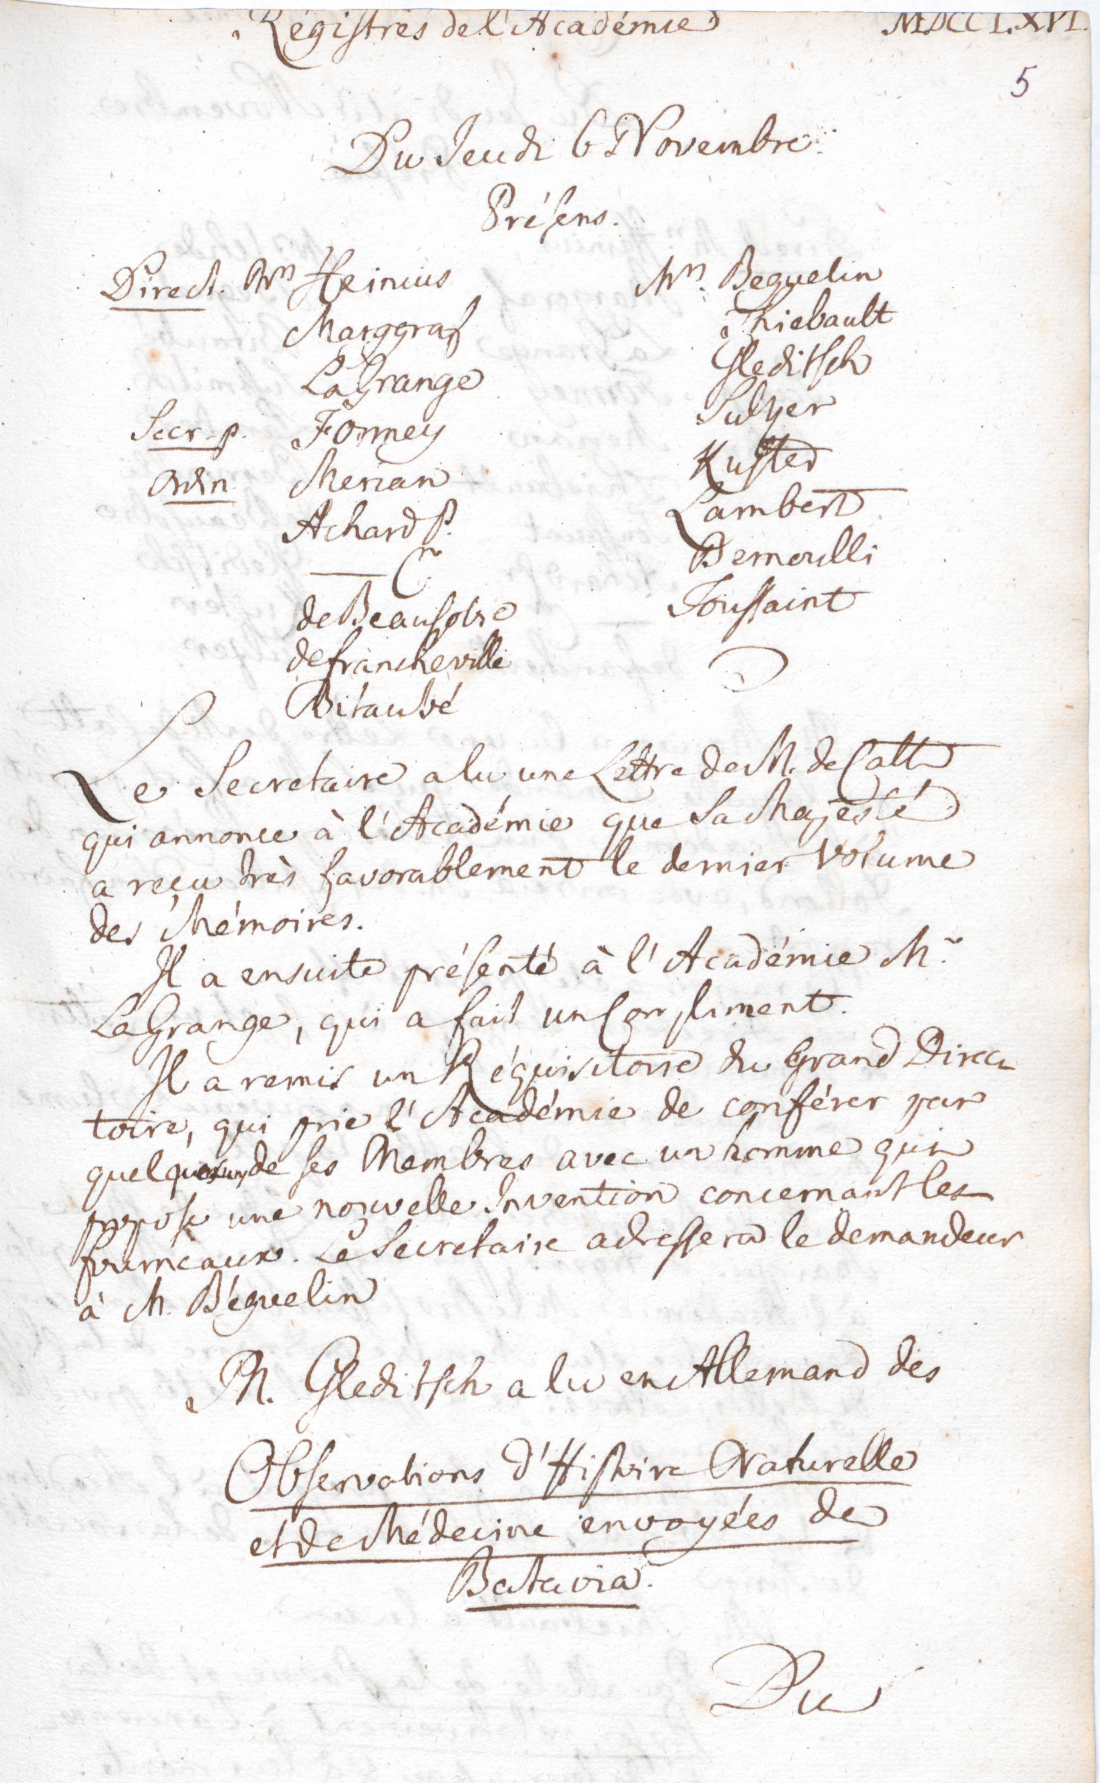 Régistres de l'Académie MDCCLXVI.
5
Du Jeudi 6 Novembre.
Présens.
Direct. Mrs Heinius
Marggraf
LaGrange
Secr. p. Formey
Ordin Merian
Achard P.
——— C.
de Beausobre
de francheville
Bitaubé
Mrs. Beguelin
Thiebault
Gleditsch
Sulzer
Kuster
Lambert
Bernoulli
Toussaint
Le Secretaire a lu une Lettre de M. de Catt
qui annonce à l'Académie que Sa Majesté
a reçu très favorablement le dernier Volume
des Mémoires.
Il a ensuite présenté à l'Académie Mr
LaGrange, qui a fait un Compliment.
Il a remis un Réquisitoire du Grand Direc
toire, qui prie l'Académie de conférer par
quelques uns de ses Membres avec un homme qui
propose une nouvelle Invention concernant les
fourneaux. Le Secretaire adressera le demandeur
à M. Béguelin
M. Gleditsch a lu en Allemand des
Observations d'Histoire Naturelle
et de Médecine envoyées de
Batavia.
Du